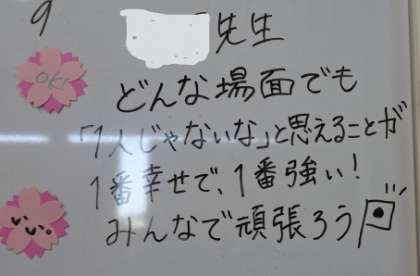 9
先生
OK!
どんな場面でも
「1人じゃないな」と思えることが
1番幸せで、1番強い！
みんなで頑張ろう